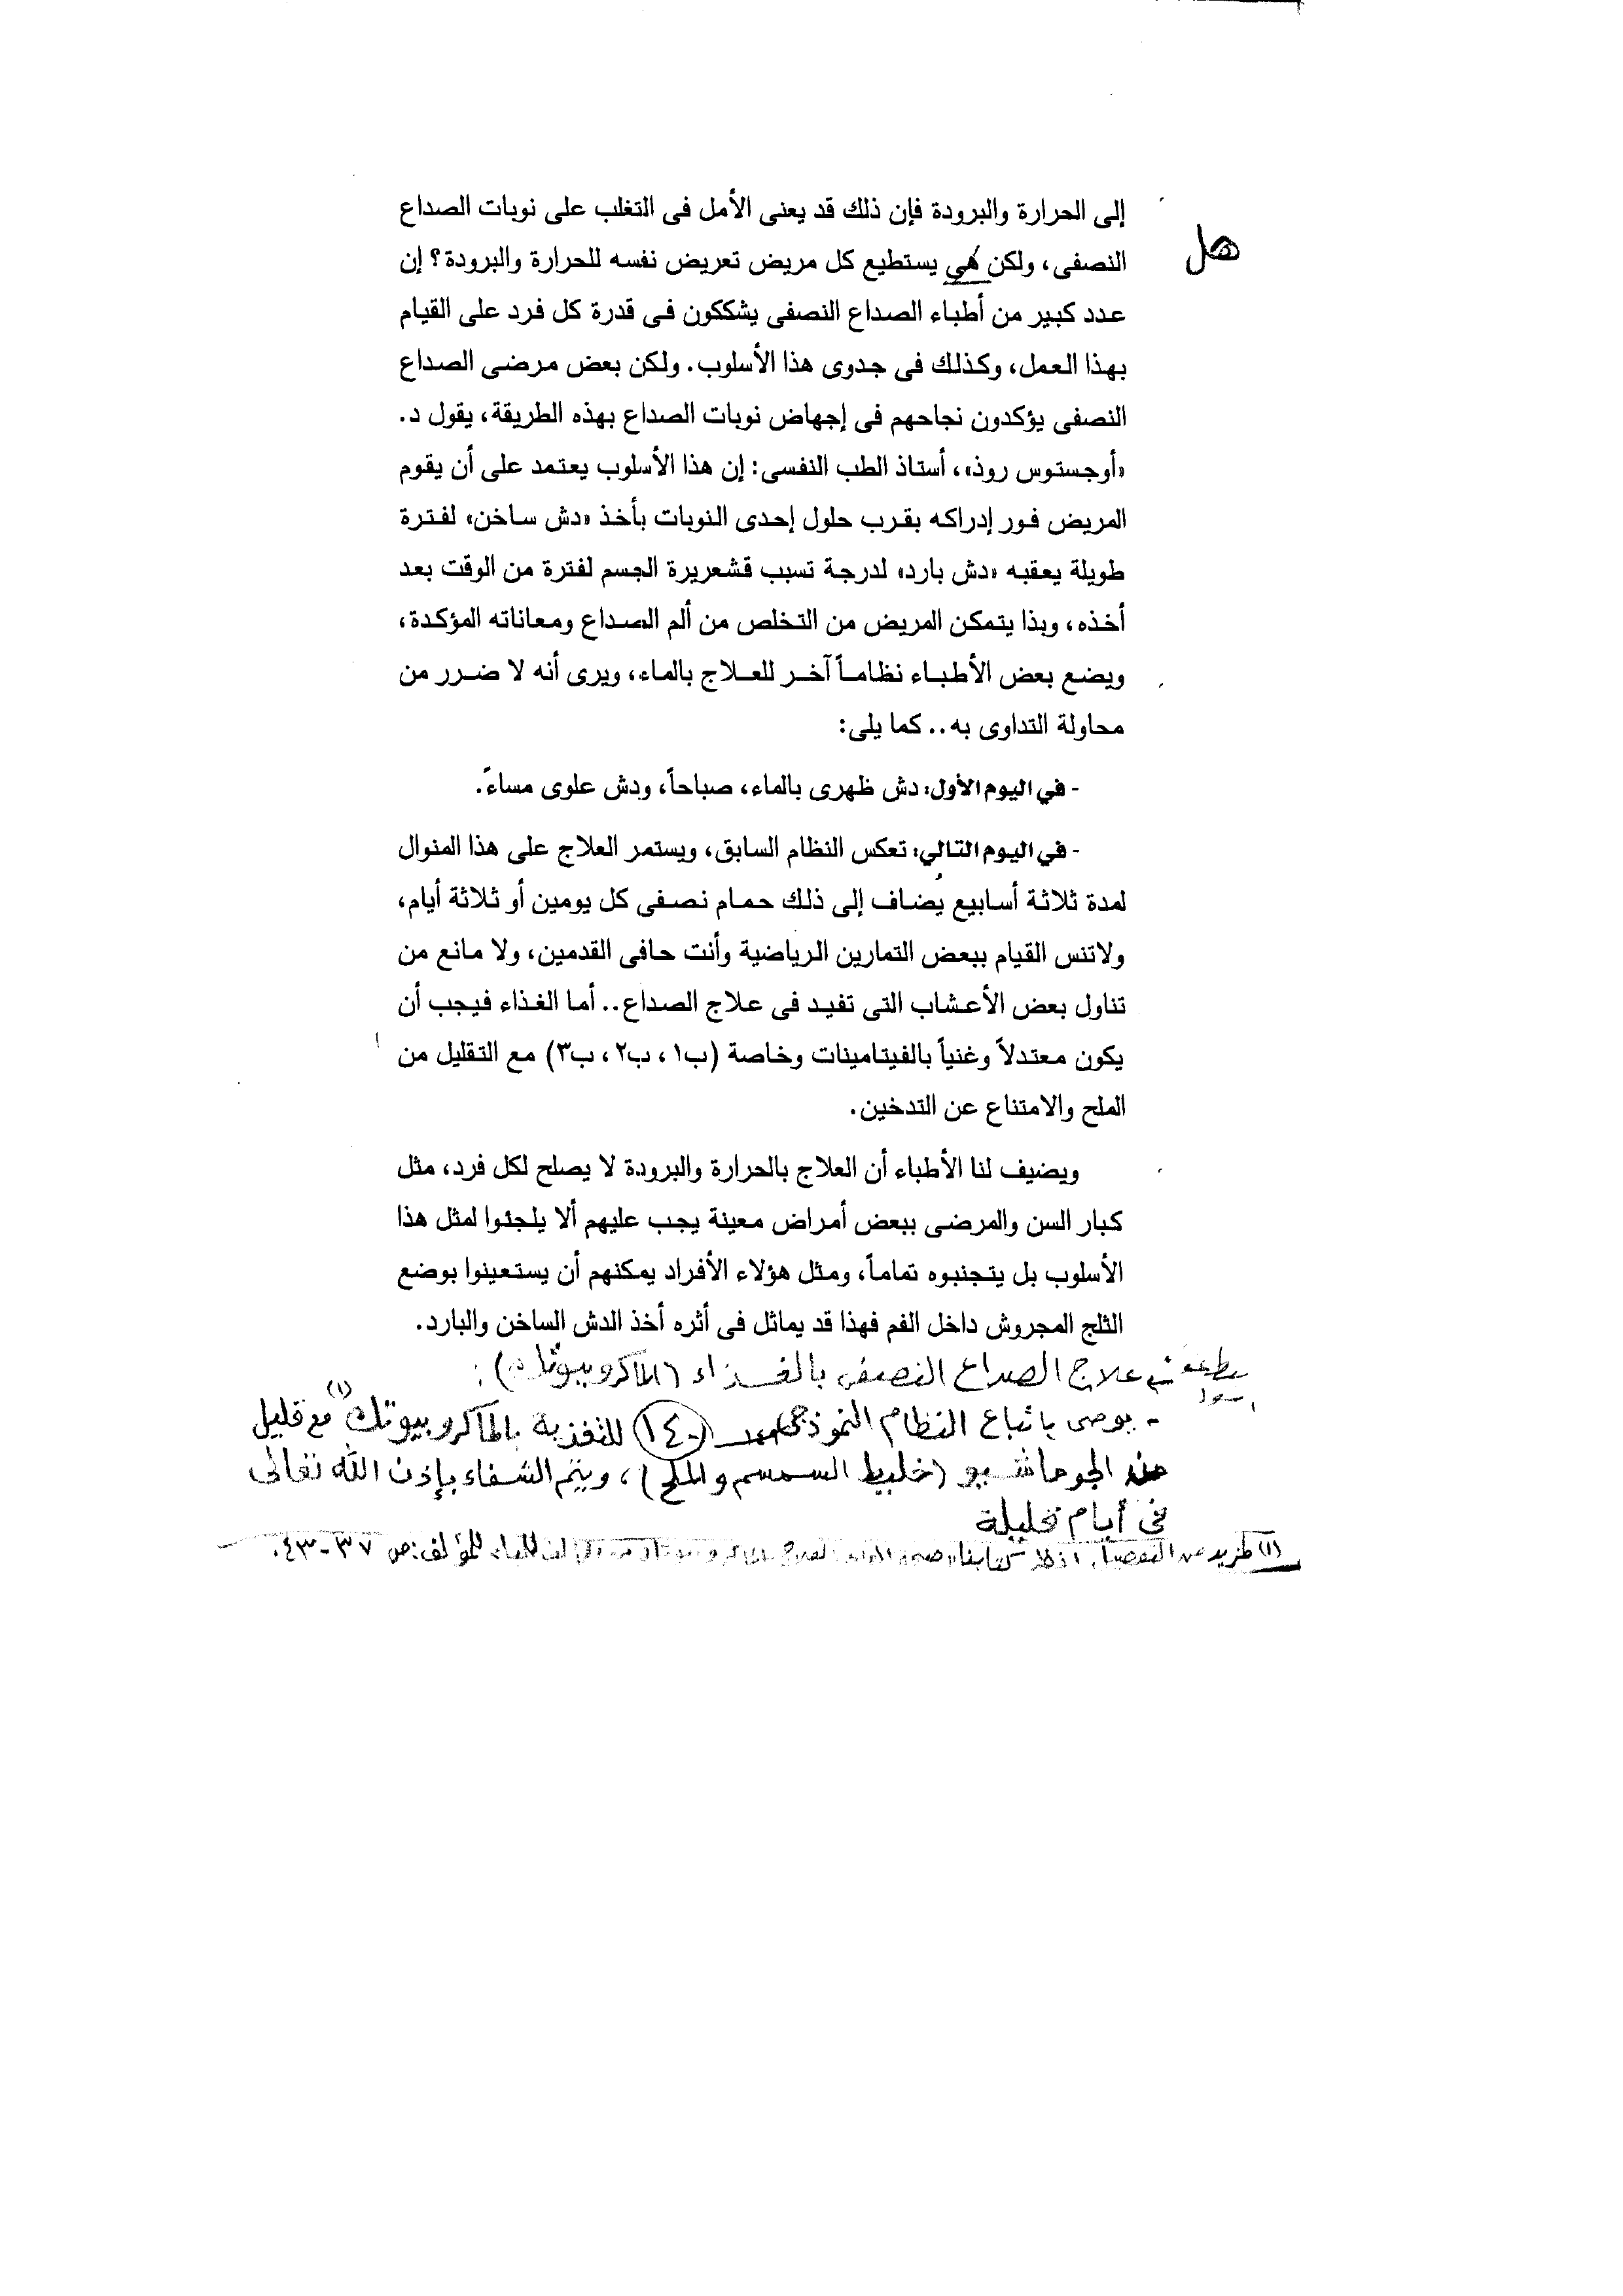 إلى الحرارة والبرودة فإن ذلك قد يعنى الأمل فى التغلب على نوبات الصداع
هل
النصفى، ولكن هي يستطيع كل مريض تعريض نفسه للحرارة والبرودة؟ إن
عدد كبير من أطباء الصداع النصفى يشككون فى قدرة كل فرد على القيام
بهذا العمل، وكذلك فى جدوى هذا الأسلوب. ولكن بعض مرضى الصداع
النصفى يؤكدون نجاحهم فى إجهاض نوبات الصداع بهذه الطريقة، يقول د.
«أوجستوس روذ»، أستاذ الطب النفسى: إن هذا الأسلوب يعتمد على أن يقوم
المريض فور إدراكه بقرب حلول إحدى النوبات بأخذ «دش ساخن» لفترة
طويلة يعقبه «دش بارد» لدرجة تسبب قشعريرة الجسم لفترة من الوقت بعد
أخذه، وبذا يتمكن المريض من التخلص من ألم الصداع ومعاناته المؤكدة،
ويضع بعض الأطباء نظاماً آخر للعلاج بالماء، ويرى أنه لا ضرر من
محاولة التداوى به.. كما يلى:
- في اليوم الأول: دش ظهرى بالماء، صباحاً، ودش علوى مساءً.
- في اليوم التالي: تعكس النظام السابق، ويستمر العلاج على هذا المنوال
لمدة ثلاثة أسابيع يُضاف إلى ذلك حمام نصفى كل يومين أو ثلاثة أيام،
ولاتنس القيام ببعض التمارين الرياضية وأنت حافى القدمين، ولا مانع من
تناول بعض الأعشاب التى تفيد فى علاج الصداع.. أما الغذاء فيجب أن
يكون معتدلاً وغنياً بالفيتامينات وخاصة (ب١، ب٢، ب٣) مع التقليل من
الملح والامتناع عن التدخين.
ويضيف لنا الأطباء أن العلاج بالحرارة والبرودة لا يصلح لكل فرد، مثل
كبار السن والمرضى ببعض أمراض معينة يجب عليهم ألا يلجئوا لمثل هذا
الأسلوب بل يتجنبوه تماماً، ومثل هؤلاء الأفراد يمكنهم أن يستعينوا بوضع
الثلج المجروش داخل الفم فهذا قد يماثل فى أثره أخذ الدش الساخن والبارد.
علاج الصداع النصفى بالغذاء (الماكروبيوتك):
- يوصى باتباع النظام النموذجى للتغذية بالماكروبيوتك(١) مع قليل
من الجوماشيو (خليط السمسم والملح)، ويتم الشفاء بإذن الله تعالى
فى أيام قليلة
(١) لمزيد من التفصيل انظر كتابنا للمؤلف: ص ٣٧-٤٣.